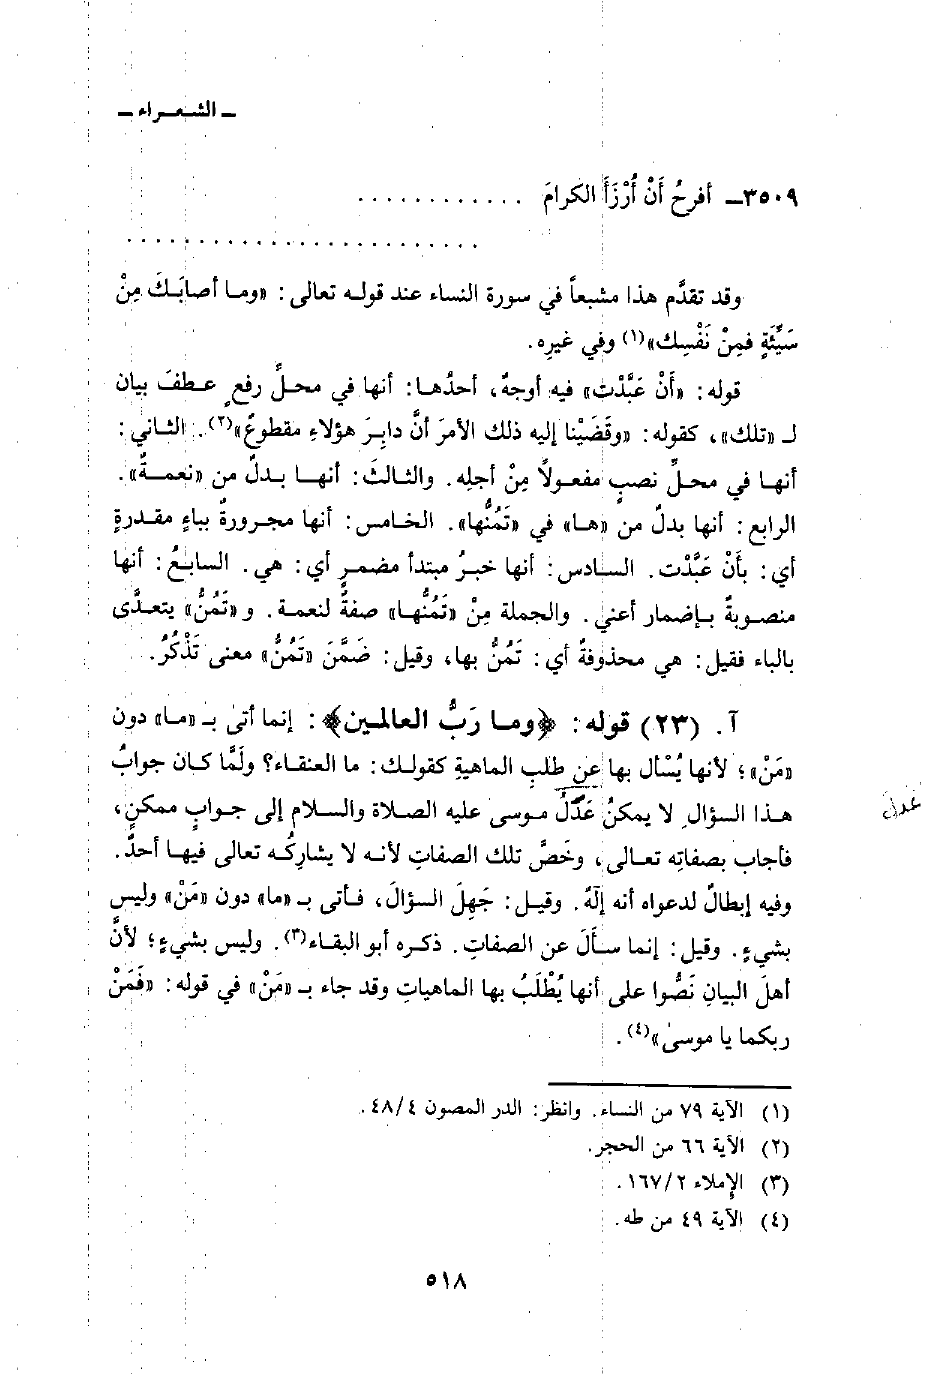 ـ الشعراء ـ
٣٥٠٩ـ أفرحُ أَنْ أُرْزَأَ الكرامَ . . . . . . . . . . . .
. . . . . . . . . . . . . . . . . . . . . . . . .
وقد تقدَّم هذا مشبعاً في سورة النساء عند قوله تعالى: «وما أصابَكَ مِنْ
سَيِّئَةٍ فمِنْ نَفْسِك»(١) وفي غيرِه.
قوله: «أَنْ عَبَّدْتَ» فيه أوجهٌ، أحدُها: أنها في محلِّ رفعٍ عطفَ بيان
لـ «تلك»، كقوله: «وقَضَيْنا إليه ذلك الأمرَ أنَّ دابِرَ هؤلاءِ مقطوعٌ»(٢). الثاني:
أنها في محلِّ نصبٍ مفعولاً مِنْ أجلِه. والثالث: أنها بدلٌ من «نعمةٌ».
الرابع: أنها بدلٌ من «ها» في «تَمُنُّها». الخامس: أنها مجرورةٌ بباءٍ مقدرةٍ
أي: بأَنْ عَبَّدْتَ. السادس: أنها خبرُ مبتدأ مضمرٍ أي: هي. السابعُ: أنها
منصوبةٌ بإضمار أعني. والجملة مِنْ «تَمُنُّها» صفةٌ لنعمة. و «تَمُنُّ» يتعدَّى
بالباء فقيل: هي محذوفةٌ أي: تَمُنُّ بها، وقيل: ضَمَّنَ «تَمُنُّ» معنى تَذْكُرُ.
آ. (٢٣) قوله: ﴿وما رَبُّ العالمين﴾: إنما أتىٰ بـ «ما» دون
«مَنْ»؛ لأنها يُسْأل بها عن طلبِ الماهيةِ كقولك: ما العنقاء؟ ولَمَّا كان جوابُ
هذا السؤالِ لا يمكنُ عَدَلَ موسى عليه الصلاة والسلام إلى جوابٍ ممكنٍ،
عدلَ
فأجاب بصفاتِه تعالى، وخَصَّ تلك الصفاتِ لأنه لا يشاركُه تعالى فيها أحدٌ.
وفيه إبطالٌ لدعواه أنه إلهٌ. وقيل: جَهِلَ السؤالَ، فأتى بـ «ما» دون «مَنْ» وليس
بشيءٍ. وقيل: إنما سألَ عن الصفاتِ. ذكره أبو البقاء(٣). وليس بشيءٍ؛ لأنَّ
أهلَ البيانِ نَصُّوا على أنها يُطْلَبُ بها الماهياتِ وقد جاء بـ «مَنْ» في قوله: «فَمَنْ
ربكما يا موسىٰ»(٤).
(١) الآية ٧٩ من النساء. وانظر: الدر المصون ٤٨/٤.
(٢) الآية ٦٦ من الحجر.
(٣) الإملاء ١٦٧/٢.
(٤) الآية ٤٩ من طه.
٥١٨